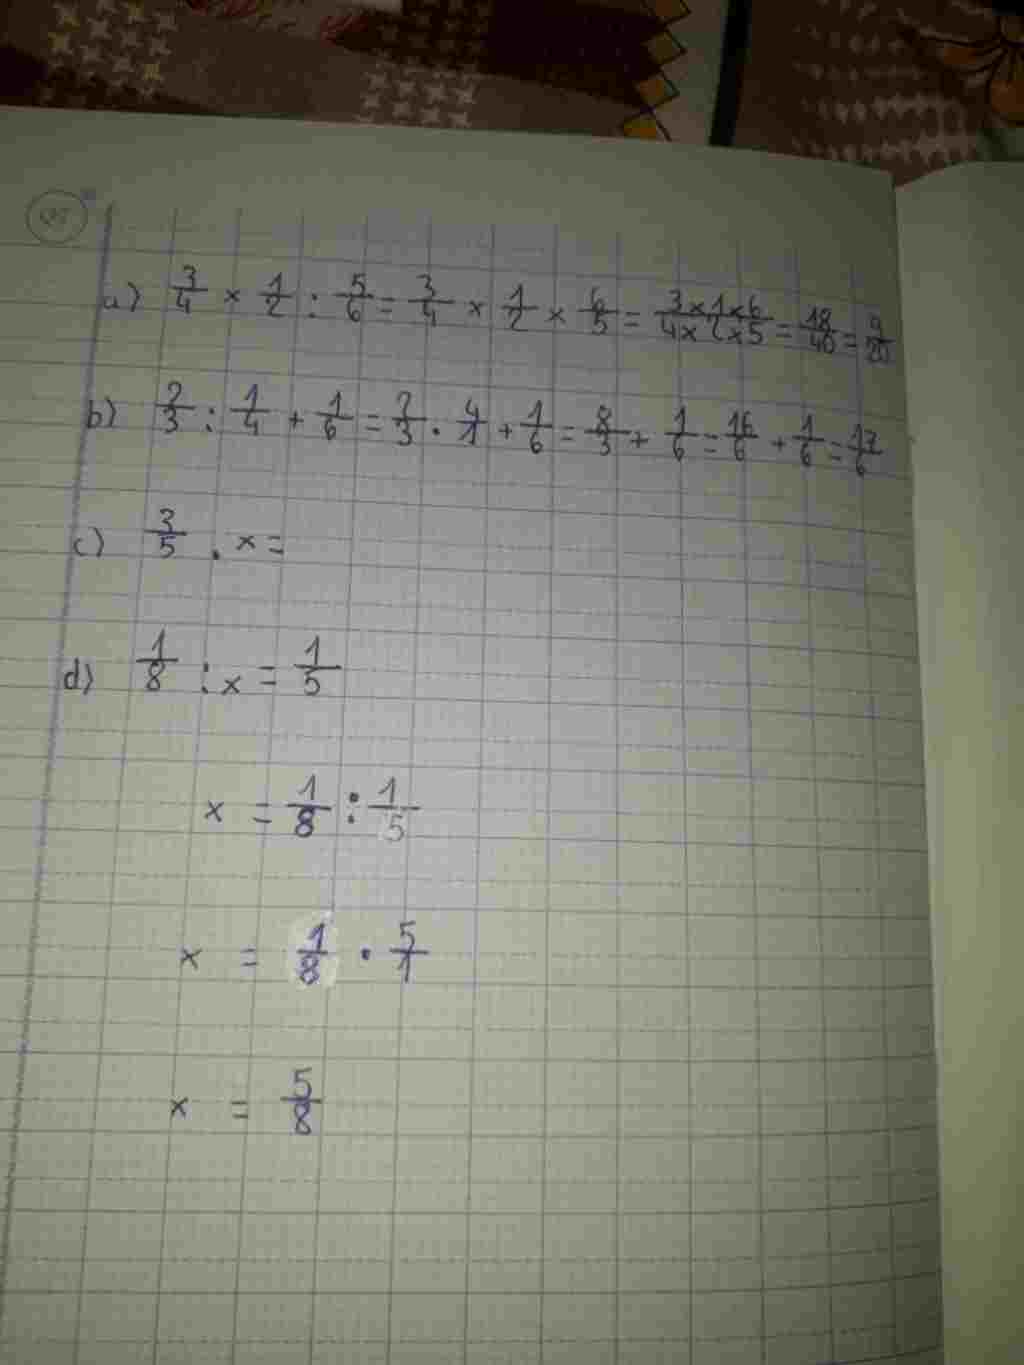 a) 3/4 × 1/2 : 5/6 = 3/4 × 1/2 × 6/5 = 3×1×6/4×2×5 = 18/40 = 9/20
b) 2/3 : 1/4 + 1/6 = 2/3 . 4/1 + 1/6 = 8/3 + 1/6 = 16/6 + 1/6 = 17/6
c) 3/5 . x =
d) 1/8 : x = 1/5
x = 1/8 : 1/5
x = 1/8 . 5/1
x = 5/8